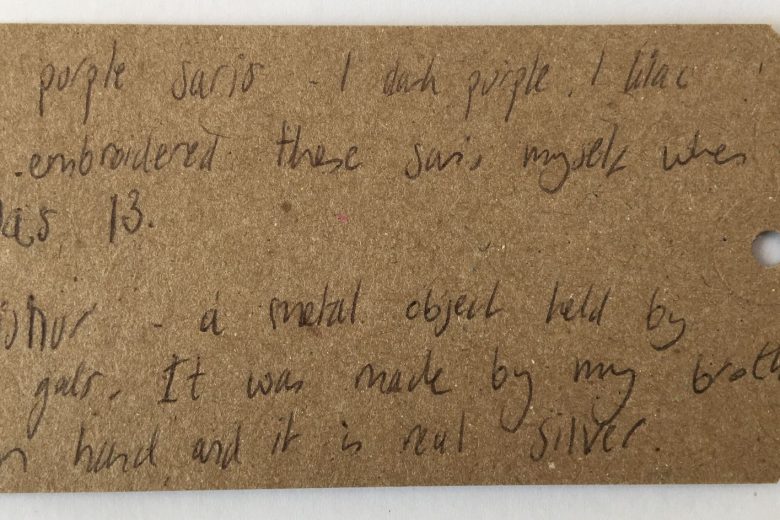 purple saris - 1 dark purple, 1 lilac
embroidered these saris myself when
was 13.
- a metal object held by
gals. It was made by my broth
hand and it is real silver.